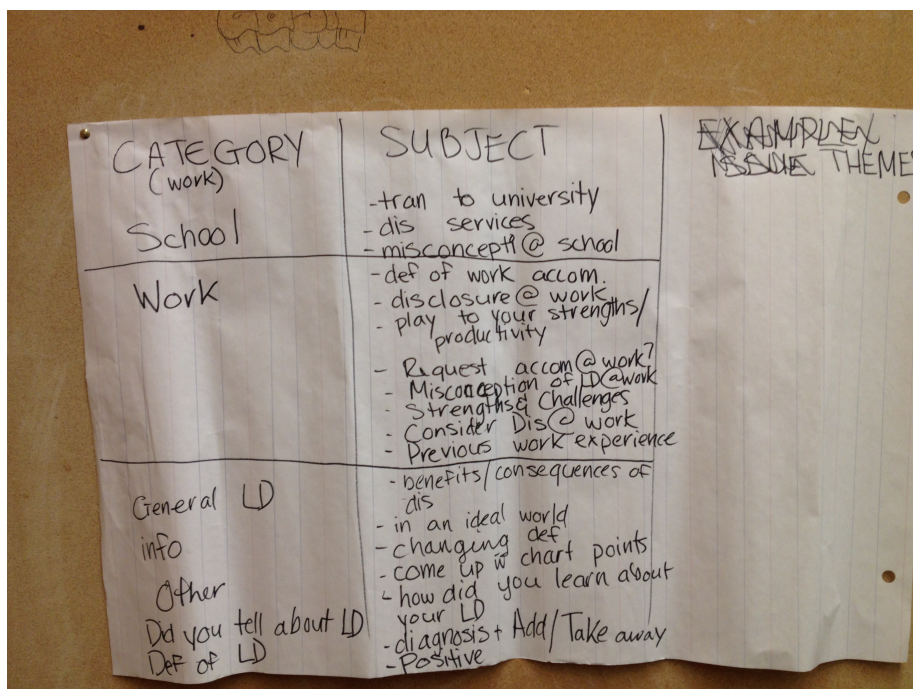 CATEGORY
(work)
School
SUBJECT
-tran to university
-dis services
-misconcept @ school
THEMES
Work
-def of work accom.
-disclosure @ work
-play to your strengths/
productivity
-Request accom@work?
-Misconception of LD@work
-Strengths& Challenges
-Consider Dis@ work
-Previous work experience
General LD
info
Other
Did you tell about LD
Def of LD
-benefits/consequences of
dis
-in an ideal world
-changing def
-come up w chart points
-how did you learn about
your LD
-diagnosis + Add/Take away
-Positive